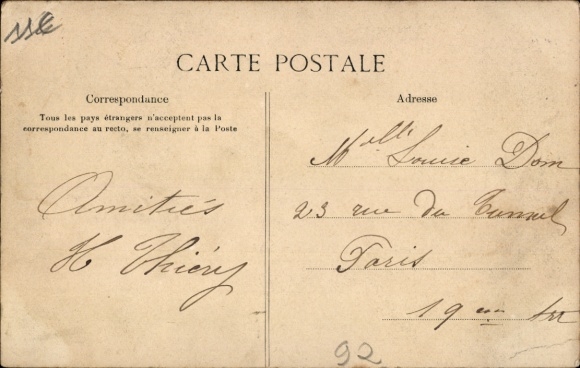 118
CARTE POSTALE
Correspondance
Tous les pays étrangers n'acceptent pas la
correspondance au recto, se renseigner à la Poste
Amitiés
H Thiéry
Adresse
Melle Louise Dom
23 rue du Tunnel
Paris
19eme Arr
92